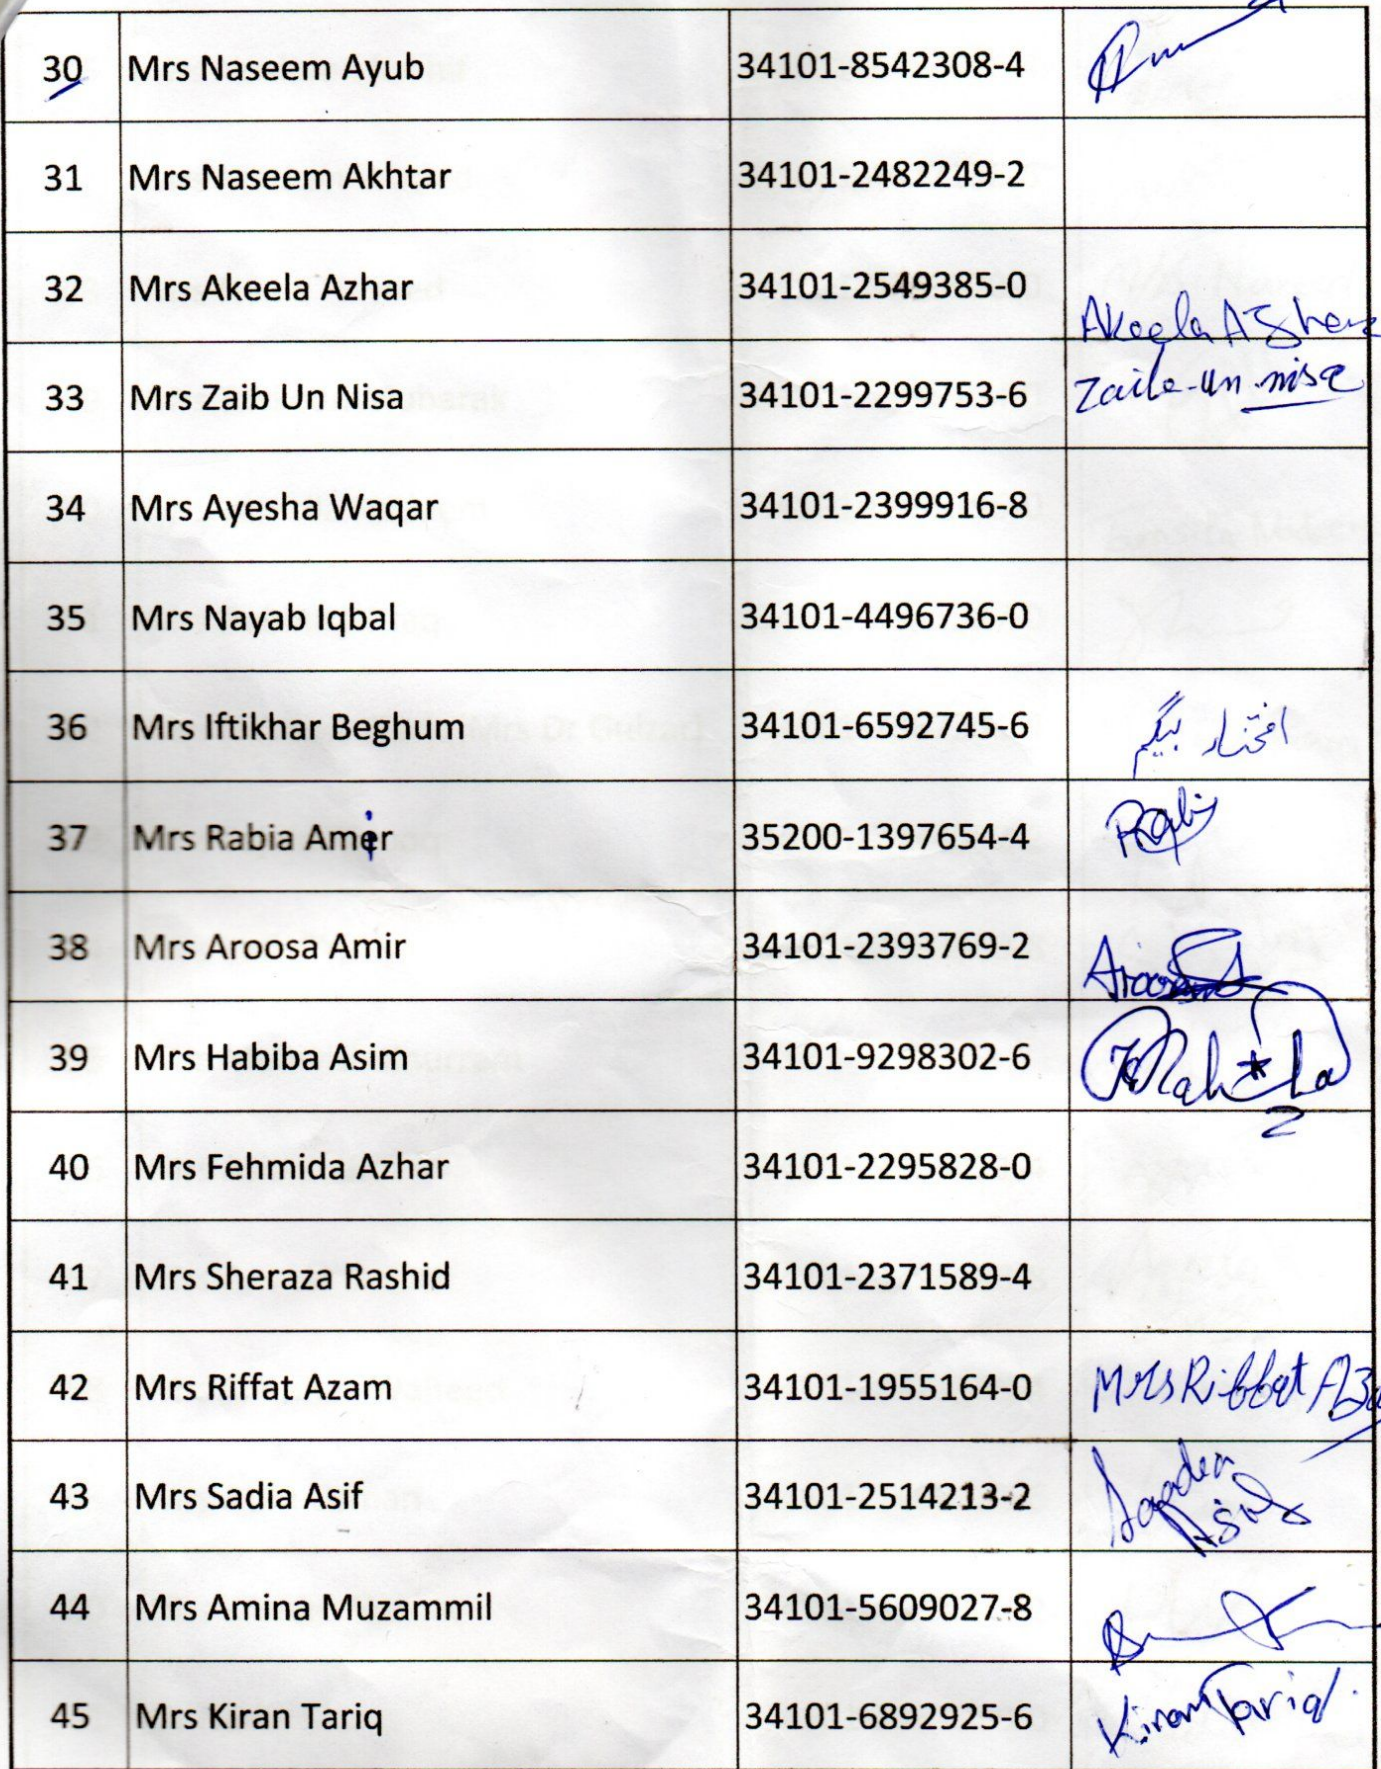 30 Mrs Naseem Ayub 34101-8542308-4
31 Mrs Naseem Akhtar 34101-2482249-2
32 Mrs Akeela Azhar 34101-2549385-0 Akeela Azhar
33 Mrs Zaib Un Nisa 34101-2299753-6 Zaib-un-nisa
34 Mrs Ayesha Waqar 34101-2399916-8
35 Mrs Nayab Iqbal 34101-4496736-0
36 Mrs Iftikhar Beghum 34101-6592745-6 افتخار بیگم
37 Mrs Rabia Amir 35200-1397654-4
38 Mrs Aroosa Amir 34101-2393769-2
39 Mrs Habiba Asim 34101-9298302-6
40 Mrs Fehmida Azhar 34101-2295828-0
41 Mrs Sheraza Rashid 34101-2371589-4
42 Mrs Riffat Azam 34101-1955164-0 Mrs Riffat Aza
43 Mrs Sadia Asif 34101-2514213-2 Saadea Asif
44 Mrs Amina Muzammil 34101-5609027-8
45 Mrs Kiran Tariq 34101-6892925-6 Kiran Tariq